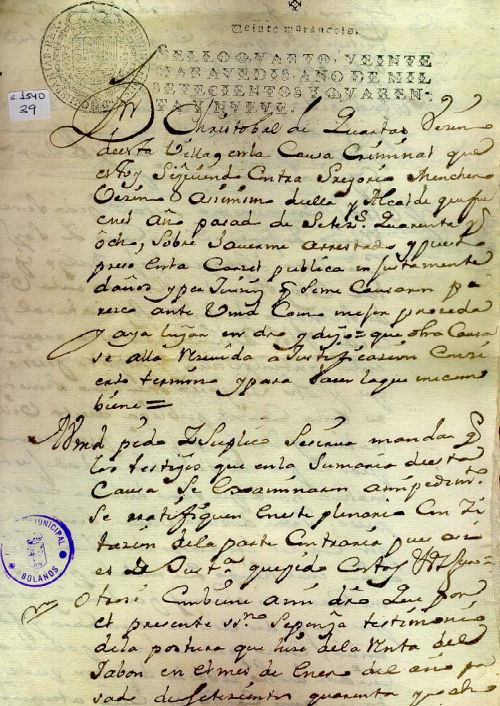 Veinte marauedis.
SELLO QVARTO, VEINTE
MARAVEDIS, AÑO DE MIL
SETECIENTOS Y QVAREN-
TA Y NVEVE.
s 1540
29
Christobal de Quartas Vezin
desta Villa, en la Causa Criminal que
estoy Siguiendo Contra Gregorio Menchero
Vezino Assimismo della y Alcalde que fue
en el Año pasado de Setez.s Quarenta y
ocho, Sobre Hauerme arrestado y puesto
preso en la Carzel publica injustamente
daños y per q Seme Causaron pa
rezco ante Vmd Como mejor proceda
y aya lugar en dro y digo = que otra Causa
se alla Rezeuida a Justificazion Con
zierto termino y para hazer la que me com
biene =
A Vmd pido y Suplico Se sirua mandar q
los testigos que en la Sumaria de esta
Causa Se Examinaron a mi pedim.to
Se ratifiquen en este plenario Con Zi
tazion de la parte Contraria pues asi
es de Just.a que pido Costas
Otrosi Combiene a mi dro Que por
el presente ss.no Seponga testimonio
de la postura que hize de la Renta del
Jabon en el mes de Enero del año pa
sado de setezientos quarenta y ocho
MUNICIPAL
BOLAÑOS